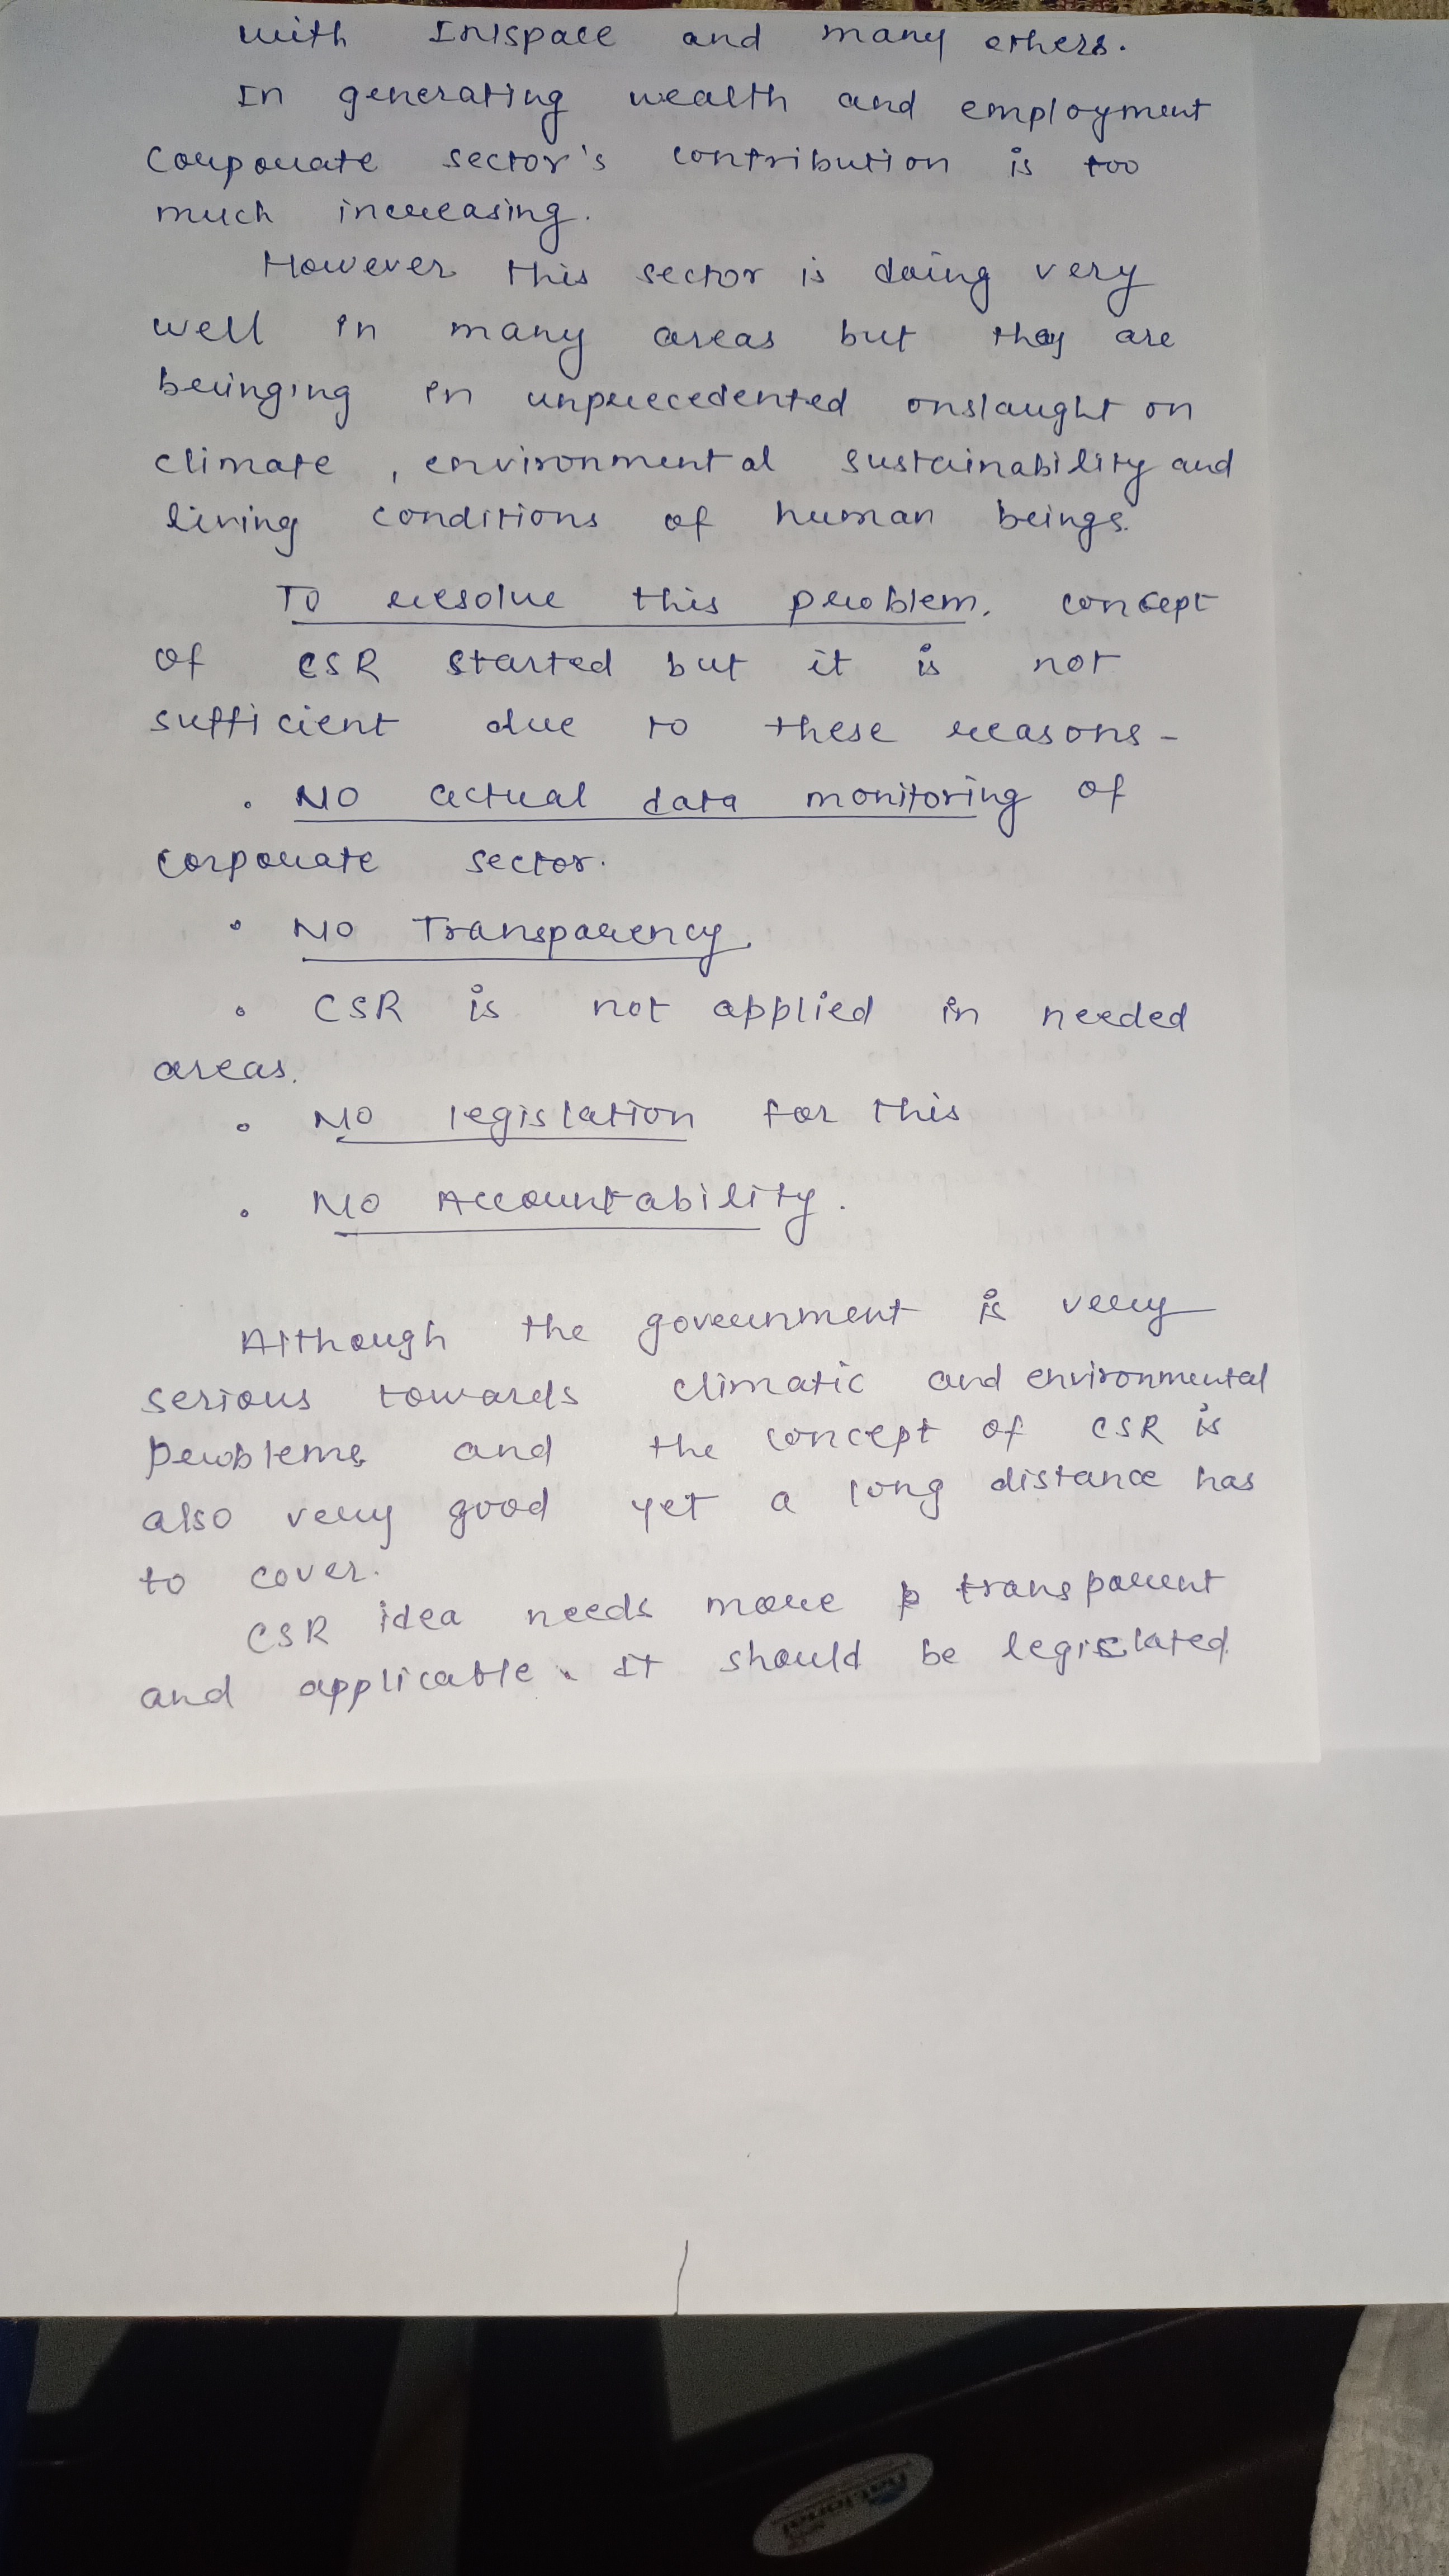 with Inspace and many others.
In generating wealth and employment
Corporate sector's contribution is too
much increasing.
However this sector is doing very
well in many areas but they are
bringing in unprecedented onslaught on
climate , environmental sustainability and
living conditions of human beings.
To resolve this problem, concept
of CSR started but it is not
sufficient due to these reasons-
• No actual data monitoring of
corporate sector.
• No Transparency.
• CSR is not applied in needed
areas.
• No legislation for this
• No Accountability.
Although the government is very
serious towards climatic and environmental
problems and the concept of CSR is
also very good yet a long distance has
to cover.
CSR idea needs more transparent
and applicable. It should be legislated.
national